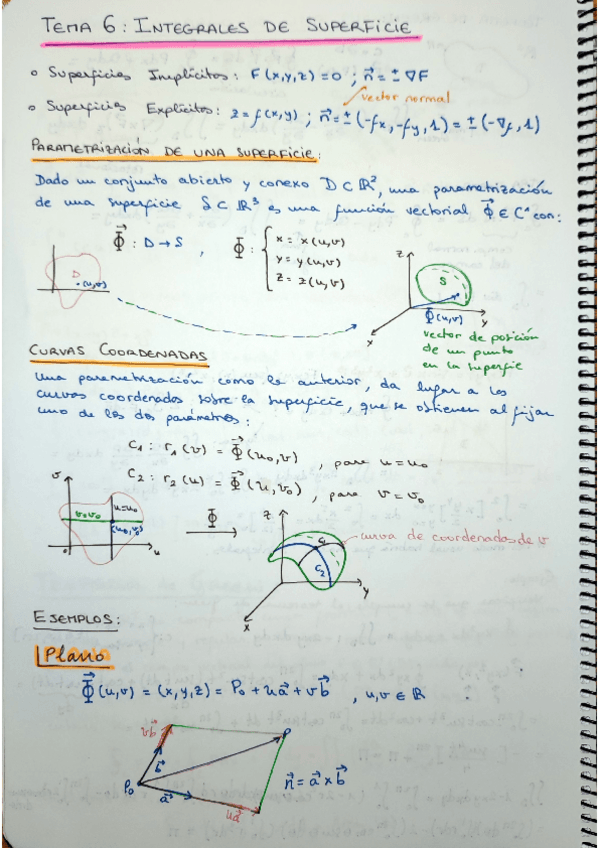 TEMA 6: INTEGRALES DE SUPERFICIE
o Superficies Implícitas: F(x,y,z)=0 ; n⃗ = ±∇F
vector normal
o Superficies Explícitas: z=f(x,y) ; n⃗=±(-fx,-fy,1)=±(-∇f,1)
PARAMETRIZACIÓN DE UNA SUPERFICIE:
Dado un conjunto abierto y conexo D⊂ℝ², una parametrización
de una superficie S⊂ℝ³ es una función vectorial Φ⃗ ∈ C¹ con:
Φ⃗ : D→S , Φ⃗ : { x = x(u,v)
y = y(u,v)
z = z(u,v)
D
•(u,v)
z
S
Φ⃗(u,v)
y
x
vector de posición
de un punto
en la superfie
CURVAS COORDENADAS
Una parametrización como la anterior, da lugar a las
curvas coordenadas sobre la superficie, que se obtienen al fijar
uno de los dos parámetros:
C₁ : r₁(v) = Φ⃗(u₀,v) , para u=u₀
C₂ : r₂(u) = Φ⃗(u,v₀) , para v=v₀
v
v=v₀
u=u₀
(u₀,v₀)
o
u
Φ⃗
z
C₁
C₂
y
x
curva de coordenadas de v
EJEMPLOS:
Plano
Φ⃗(u,v) = (x,y,z) = P₀ + ua⃗ + vb⃗ , u,v ∈ ℝ :
vb⃗
P
b⃗
P₀
a⃗
ua⃗
n⃗ = a⃗ x b⃗